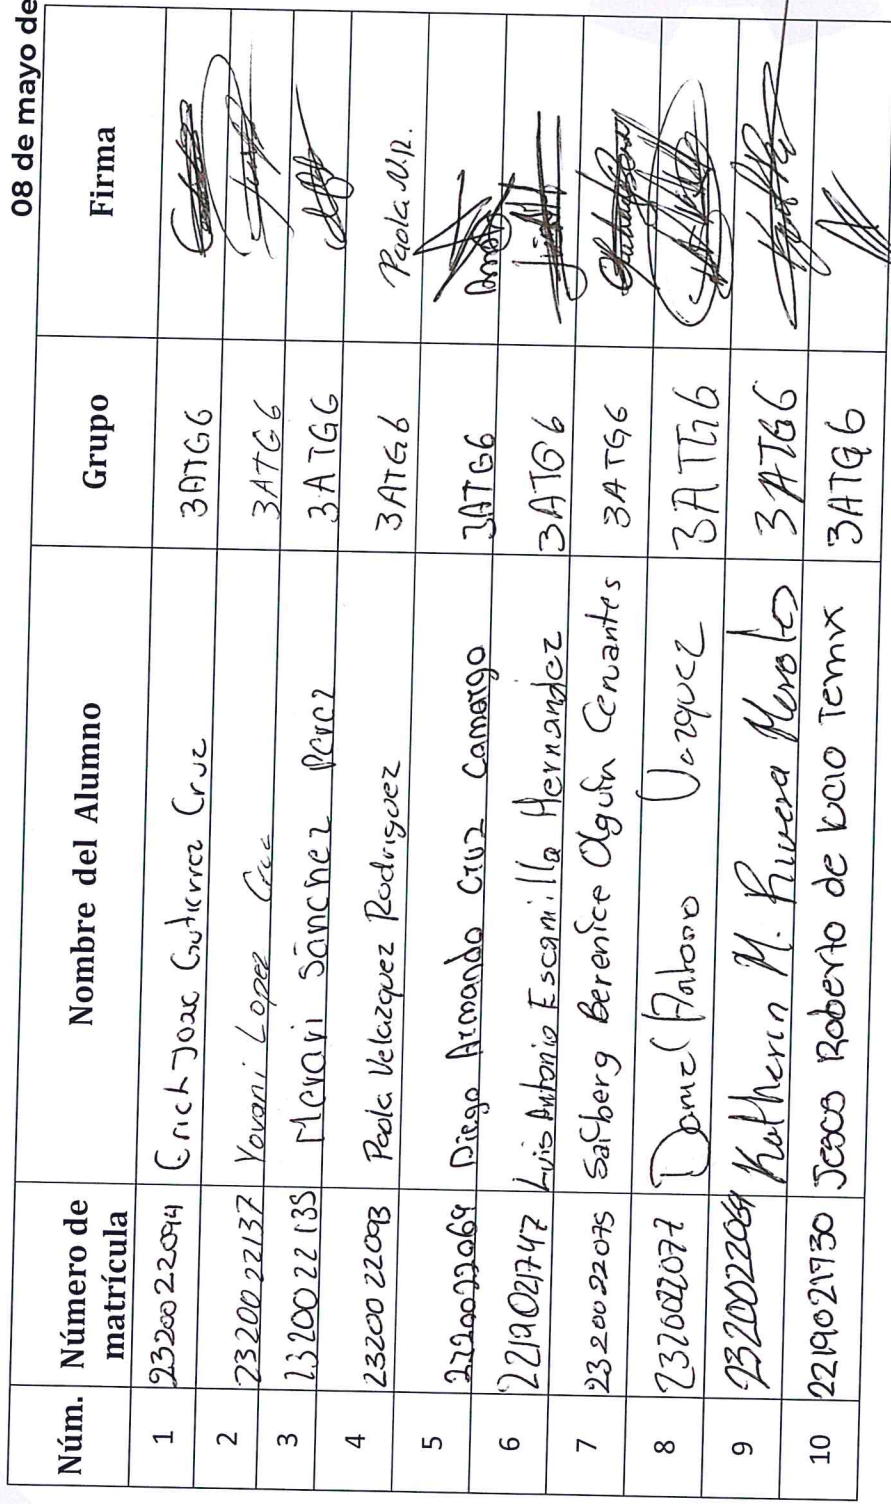 08 de mayo de
Núm. Número de matrícula Nombre del Alumno Grupo Firma
1 2320022094 Erick Joax Gutierrez Cruz 3ATG6
2 2320022137 Yovani Lopez Cruz 3ATG6
3 2320022135 Meravi Sánchez Perez 3ATG6
4 2320022093 Paola Velazquez Rodriguez 3ATG6 Paola V.R.
5 Diego Armando Cruz Camargo 3ATG6
6 2219021747 Luis Antonio Escamilla Hernandez 3ATG6
7 2320022075 Saiberg Berenice Olguín Cervantes 3ATG6
8 2320022077 Daniel Antonio Vazquez 3ATG6
9 Katherin M. Rivera 3ATG6
10 2219021730 Jesus Roberto de Lucio Temix 3ATG6